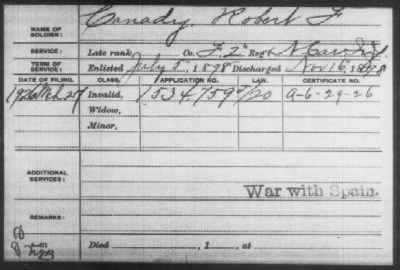 NAME OF SOLDIER: Canady, Robert F
SERVICE: Late rank, Co. F, 2" Reg't N. Car. Inf.
TERM OF SERVICE: Enlisted July 5, 1898 Discharged Nov 16, 1898
DATE OF FILING. CLASS. APPLICATION NO. LAW. CERTIFICATE NO.
1926 Mch 25 Invalid, 1534759 A-6-29-26
Widow,
Minor,
ADDITIONAL SERVICES:
War with Spain.
REMARKS:
Died, 1, at